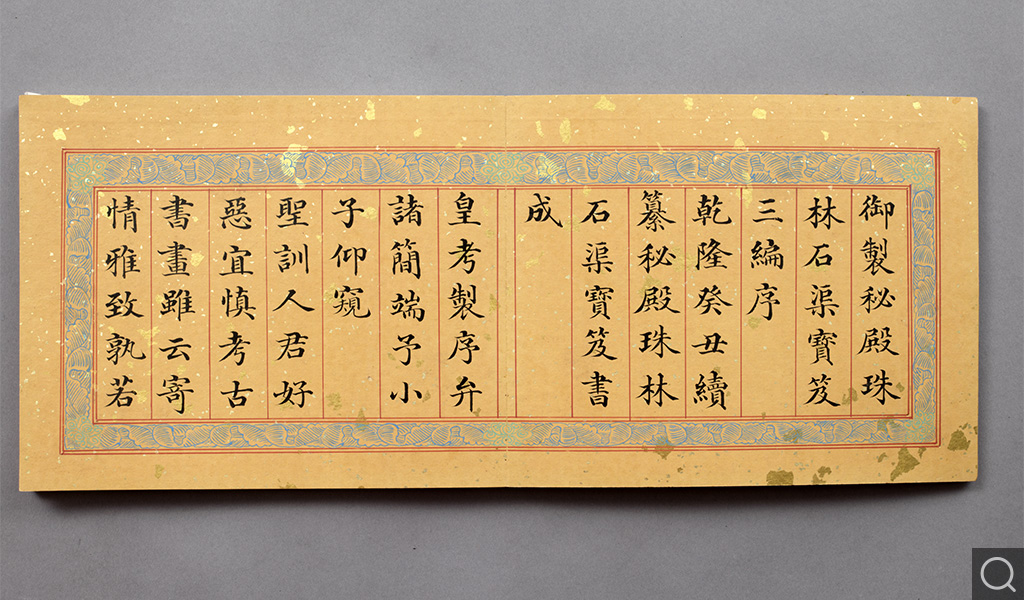 御製秘殿珠
林石渠寳笈
三編序
乾隆癸丑續
纂秘殿珠林
石渠寳笈書
成
皇考製序弁
諸簡端予小
子仰窺
聖訓人君好
惡宜慎考古
書畫雖云寄
情雅致孰若